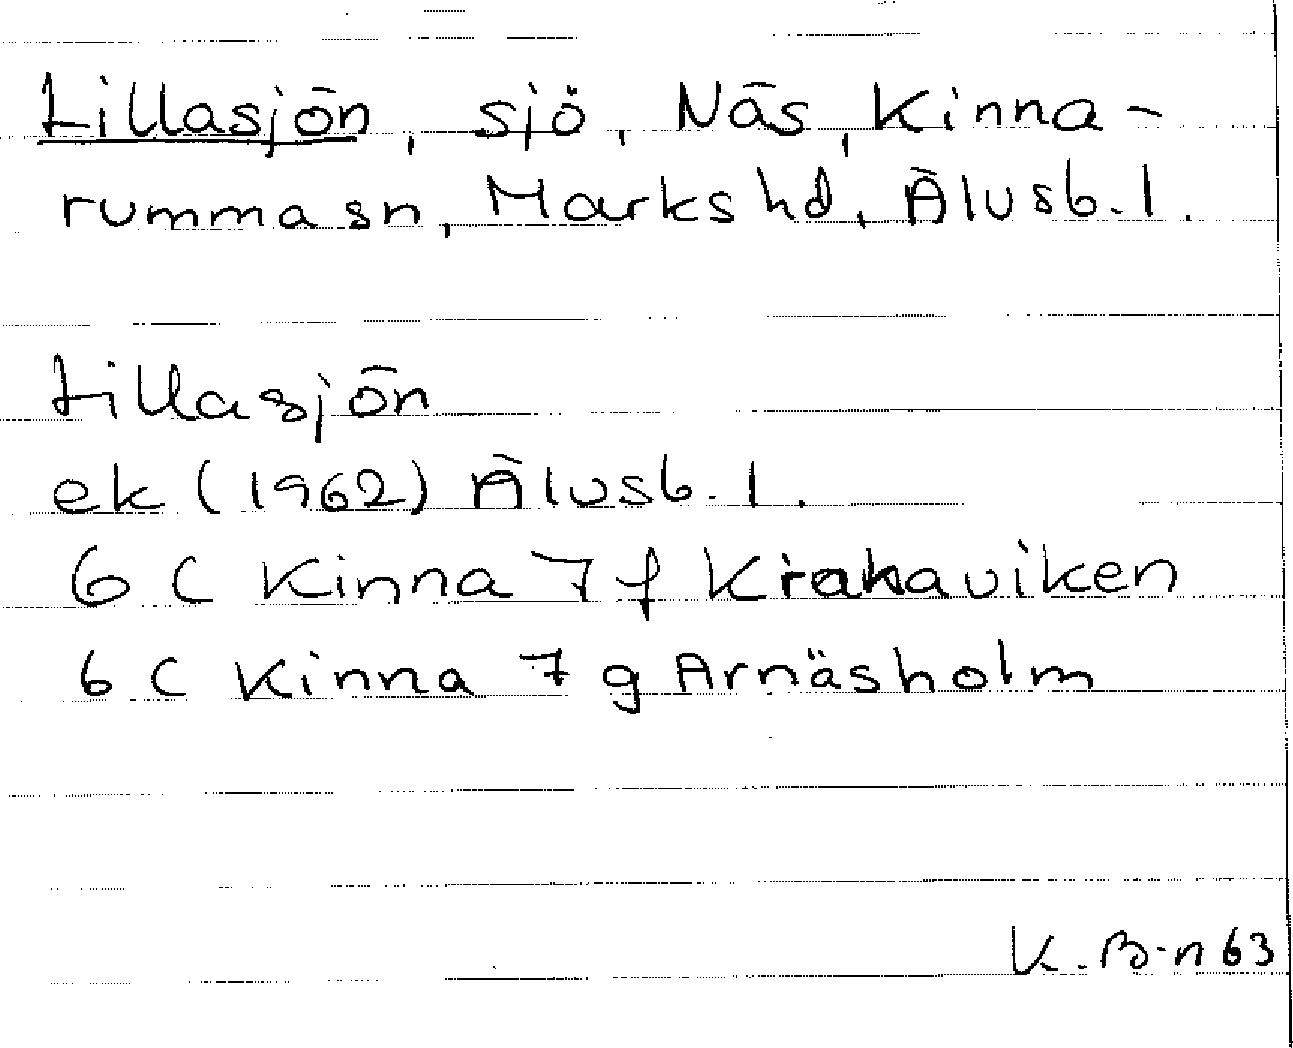 Lillasjön, sjö, Näs, Kinna-
rumma sn, Marks hd, Älvsb. l.
Lillasjön
ek (1962) Älvsb. l.
6 C Kinna 7 f Krakaviken
6 C Kinna 7 g Arnäsholm
K. B-n 63